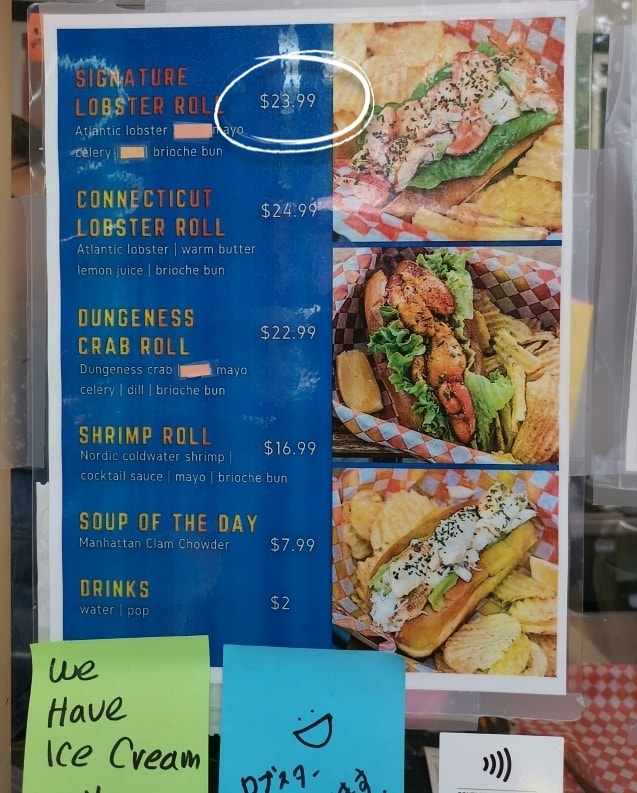 SIGNATURE
LOBSTER ROLL $23.99
Atlantic lobster mayo
celery | brioche bun
CONNECTICUT
LOBSTER ROLL $24.99
Atlantic lobster | warm butter
lemon juice | brioche bun
DUNGENESS
CRAB ROLL $22.99
Dungeness crab | mayo
celery | dill | brioche bun
SHRIMP ROLL $16.99
Nordic coldwater shrimp |
cocktail sauce | mayo | brioche bun
SOUP OF THE DAY
Manhattan Clam Chowder $7.99
DRINKS
water | pop $2
We
Have
Ice Cream
ロブスター